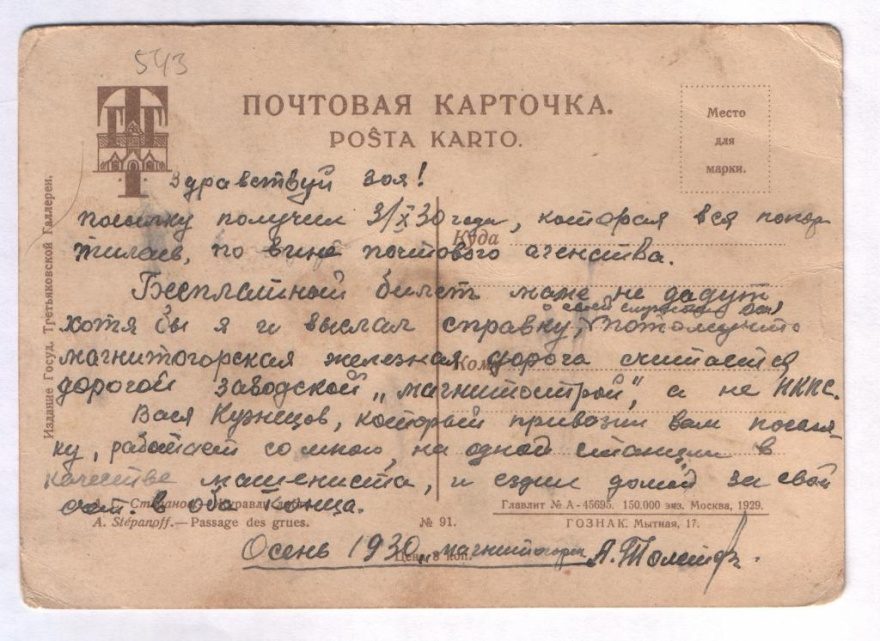 543
ПОЧТОВАЯ КАРТОЧКА.
POŜTA KARTO.
Место
для
марки.
Издание Госуд. Третьяковской Галлереи.
Здравствуй Зоя!
посылку получил 3/X 30 года, которая вся попор
тилась, по вине почтового агенства.
Куда
Бесплатной билет маме не дадут
хотя бы я и выслал справку, о своей службе
потомучто
магнитогорская железная дорога считается
Кому
дорогой заводской "магнитострой", а не НКПС.
Вася Кузнецов, который привозил вам посыл-
ку, работает со мною, на одной станции в
качестве машениста, и ездил домой за свой
счет. в оба конца.
А. Степанов. Журавли
A. Stépanoff.—Passage des grues.
№ 91.
Цена 8 коп.
Главлит № А - 45695. 150.000 экз. Москва, 1929.
ГОЗНАК. Мытная, 17.
Осень 1930, магнитогорск А. Толстов.